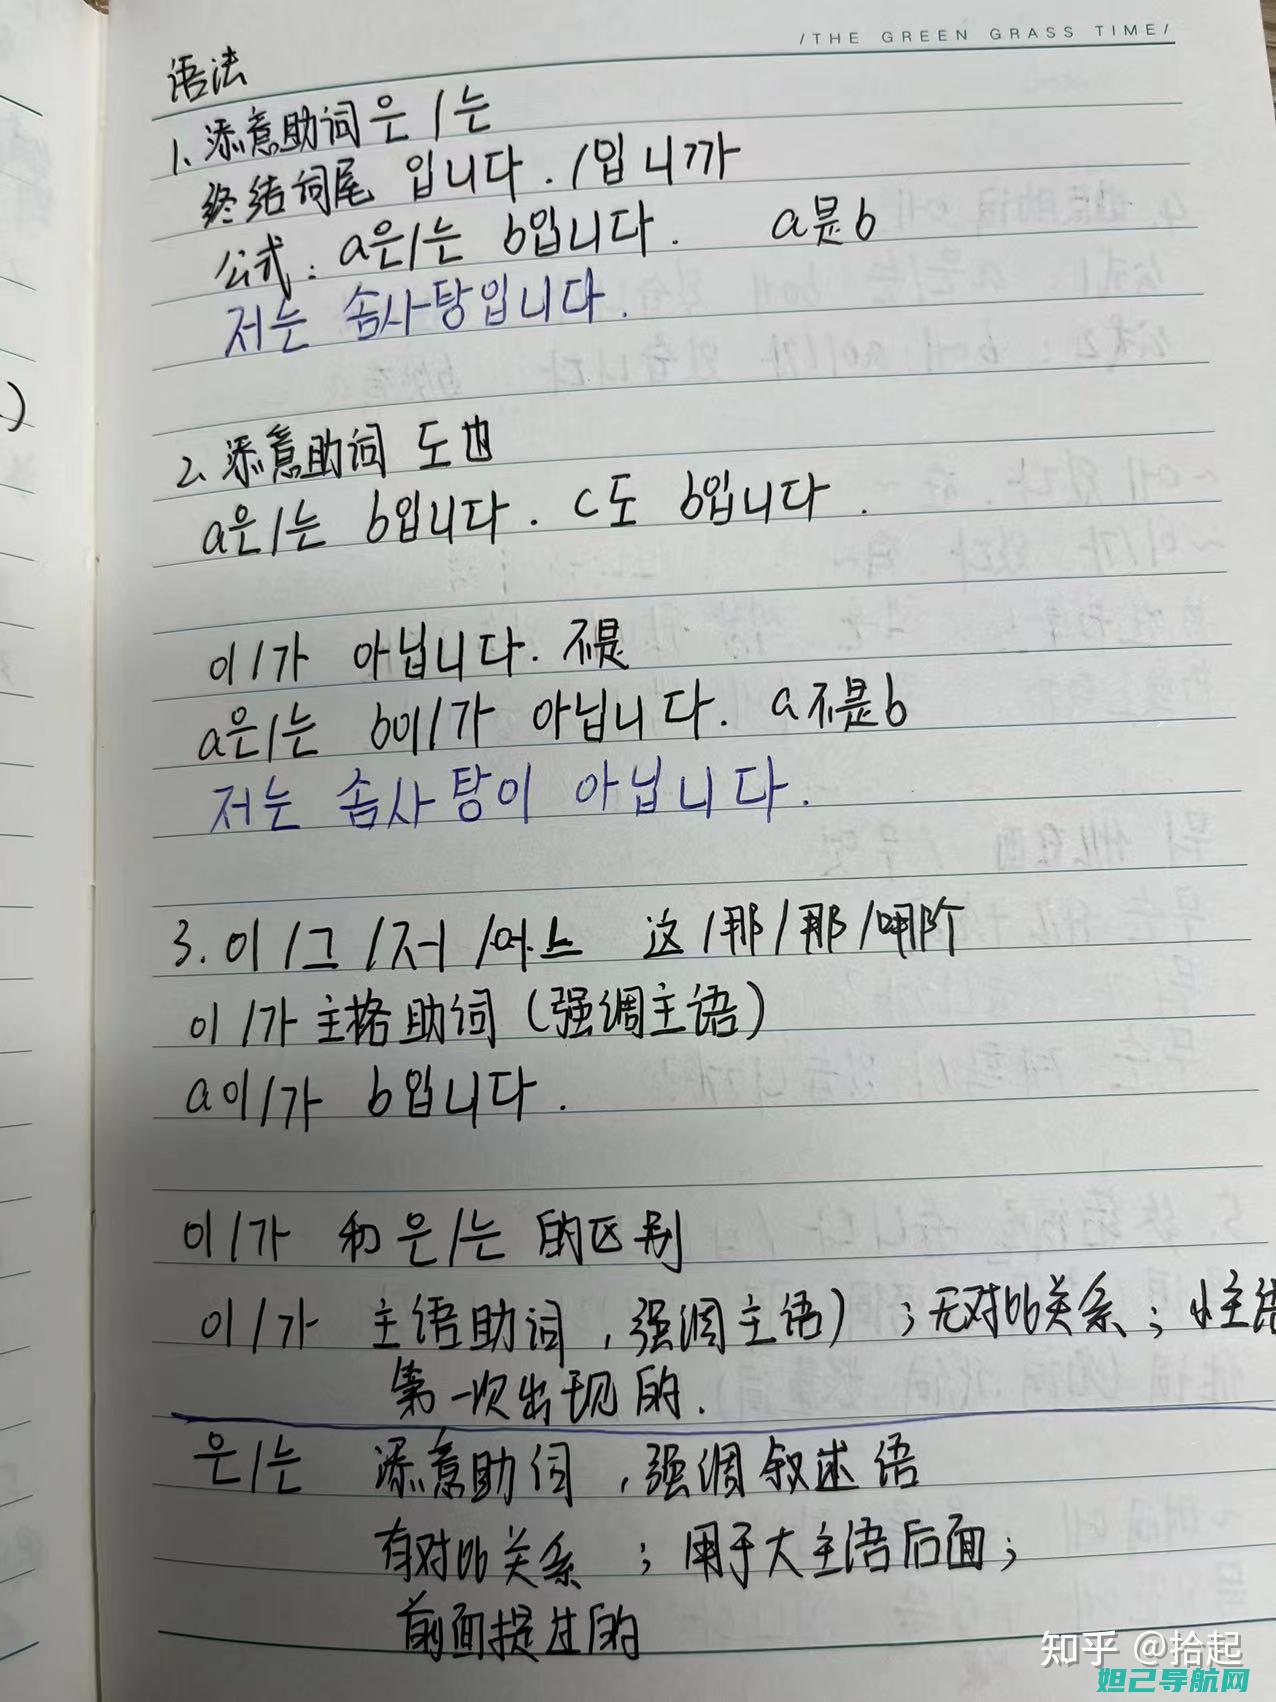 /THE GREEN GRASS TIME/
语法
1、添意助词 은/는
终结词尾 입니다. /입니까
公式: a은/는 b입니다. a是b
저는 솜사탕입니다.
2、添意助词 도 也
a은/는 b입니다. c도 b입니다.
이/가 아닙니다. 不是
a은/는 b이/가 아닙니다. a不是b
저는 솜사탕이 아닙니다.
3. 이/그/저/어느 这/那/那/哪
이/가 主格助词 (强调主语)
a이/가 b입니다.
이/가 和 은/는 的区别
이/가 主语助词, 强调主语) ; 无对比关系; 小主语
第一次出现的.
은/는 添意助词, 强调叙述语
有对比关系 ; 用于大主语后面;
前面提过的
知乎 @拾起
妲己导航网